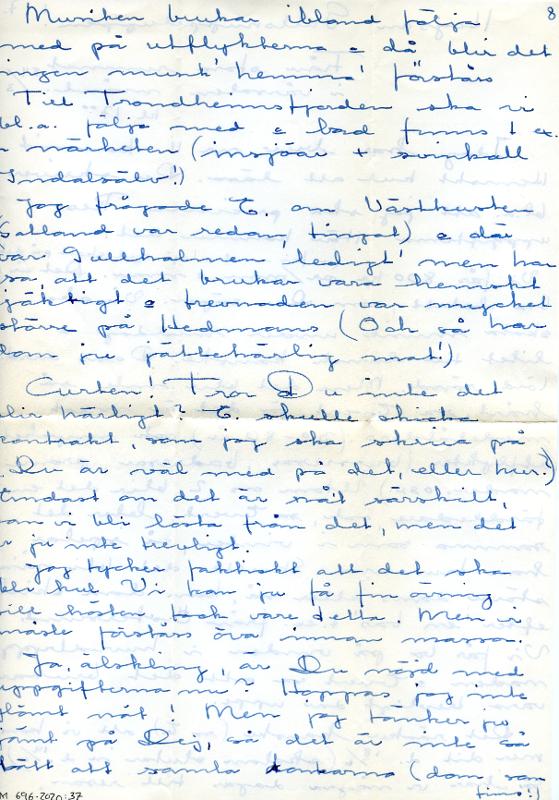 8
Musiken brukar ibland följa
med på utflykterna & då blir det
ingen musik 'hemma' förstås
Till Trondheimsfjorden ska vi
bl.a. följa med & bad finns i
närheten (insjöar + svinkall
Indalsälv!)
Jag frågade E. om Västkusten
Halland var redan tingat) & där
var Gullholmen 'ledigt' men han
sa, att det brukar vara hemskt
jäktigt & trevnaden var mycket
större på Hedmans (Och så har
dom ju jättehärlig mat!)
Curten! Tror Du inte det
blir härligt? E. skulle skicka
contrakt, som jag ska skriva på
Du är väl med på det, eller hur?)
Endast om det är nå't särskilt,
kan vi bli lösta från det, men det
är ju inte trevligt.
Jag tycker faktiskt att det ska
bli kul Vi kan ju få fin övning
till hösten tack vare detta. Men vi
måste förstås öva innan massa.
Ja, älskling, är Du nöjd med
uppgifterna nu? Hoppas jag inte
glömt nåt! Men jag tänker ju
jämt på Dej, så det är inte så
lätt att samla tankarna (dom som
finns!)
M 696-2020:37